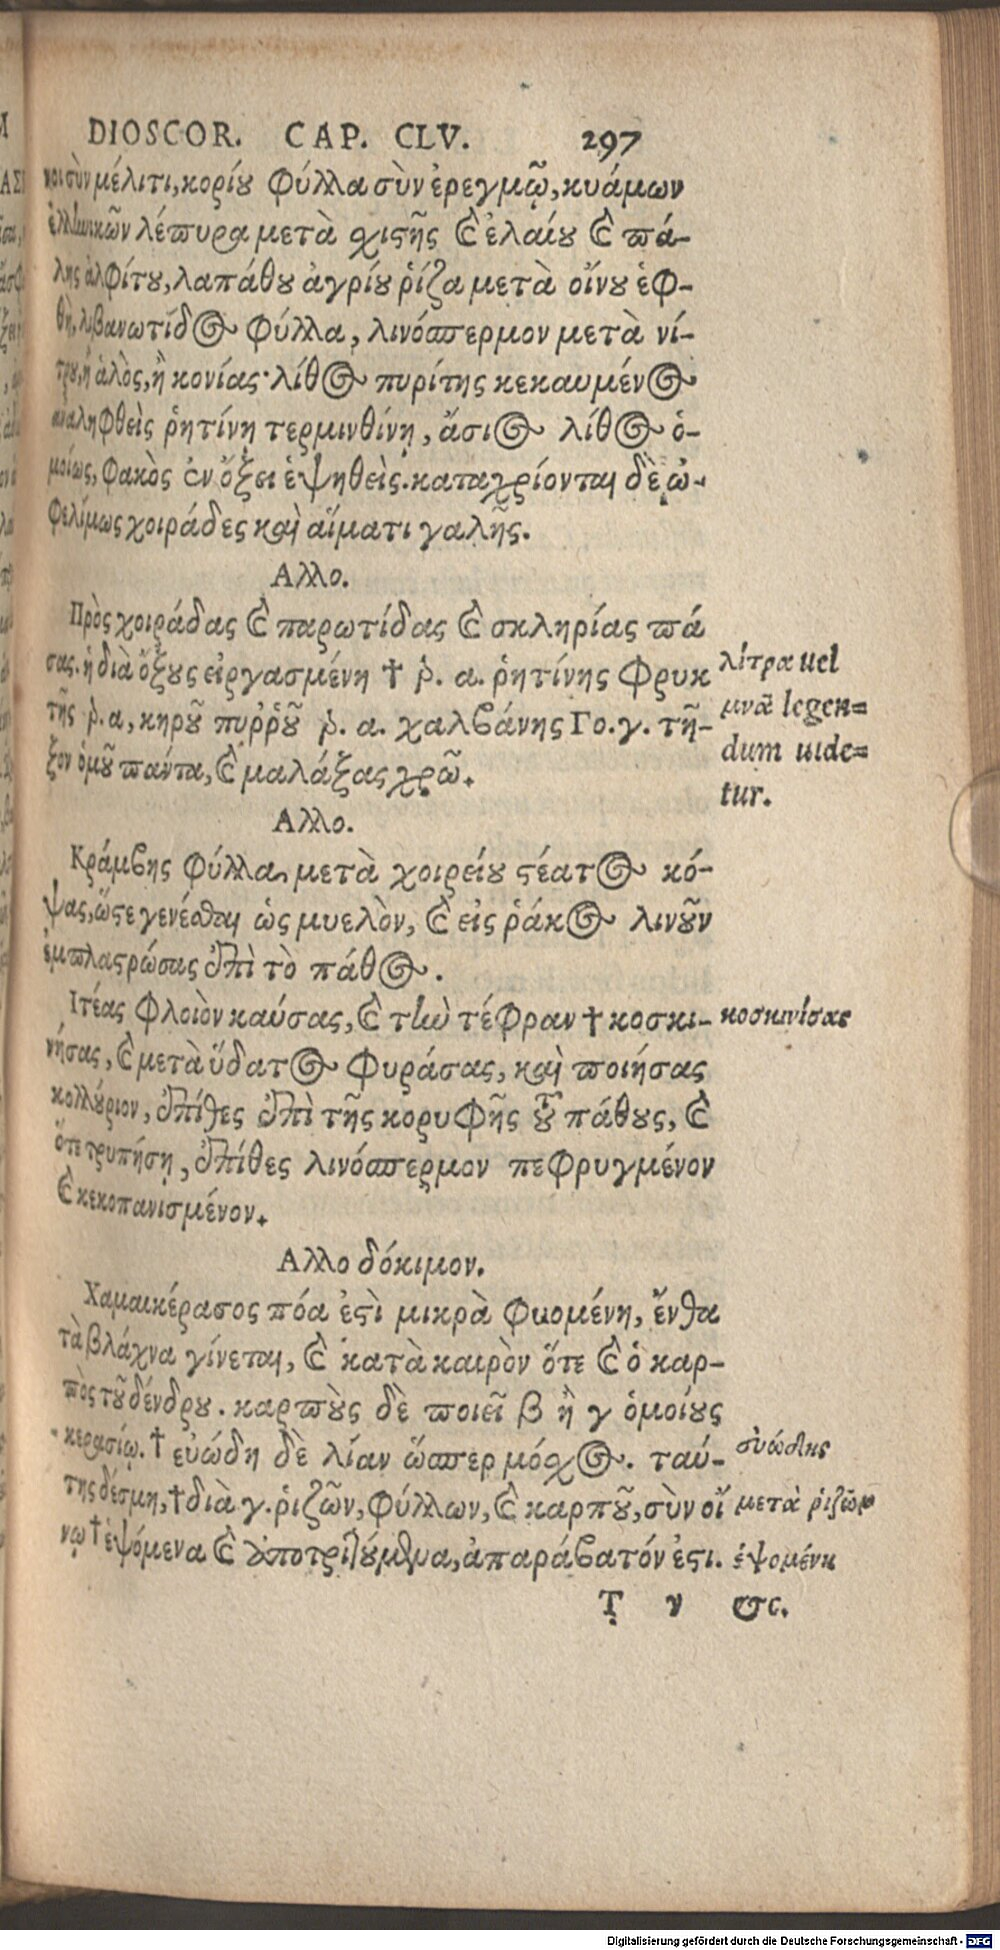 DIOSCOR. CAP. CLV. 297
νοι σὺν μέλιτι, κορίου φύλλα σὺν ἐρεγμῷ, κυάμων
ἑλληνικῶν λέπυρα μετὰ σχιστῆς καὶ ἐλαίου καὶ πά-
λης ἀλφίτου, λαπάθου ἀγρίου ῥίζα μετὰ οἴνου ἑφ-
θὴ, λιβανωτίδος φύλλα, λινόσπερμον μετὰ νί-
τρου, ἢ ἁλὸς, ἢ κονίας· λίθος πυρίτης κεκαυμένος
ἀναληφθεὶς ῥητίνῃ τερμινθίνῃ, ἄσιος λίθος ὁ-
μοίως, φακὸς ἐν ὄξει ἑψηθείς. καταχρίονται δὲ ὠ-
φελίμως χοιράδες καὶ αἵματι γαλῆς.
Αλλο.
Πρὸς χοιράδας καὶ παρωτίδας καὶ σκληρίας πά
σας. ἡ διὰ ὄξους εἰργασμένη † ῥ. α. ῥητίνης φρυκ
τῆς ῥ. α, κηροῦ πυῤῥοῦ ῥ. α. χαλβάνης Γο. γ. τῆ-
ξον ὁμοῦ πάντα, καὶ μαλάξας χρῶ.
λίτρα uel
μνᾶ legen=
dum uide=
tur.
Αλλο.
Κράμβης φύλλα, μετὰ χοιρείου στέατος κό-
ψας, ὥστε γενέσθαι ὡς μυελὸν, καὶ εἰς ῥάκος λινοῦν
ἐμπλαστρώσας ἐπὶ τὸ πάθος.
Ιτέας φλοιὸν καύσας, καὶ τὴν τέφραν † κοσκι-
κοσκινίσας
νήσας, καὶ μετὰ ὕδατος φυράσας, καὶ ποιήσας
κολλύριον, ἐπίθες ἐπὶ τῆς κορυφῆς τοῦ πάθους, καὶ
ὅτε τρυπήσῃ, ἐπίθες λινόσπερμον πεφρυγμένον
καὶ κεκοπανισμένον.
Αλλο δόκιμον.
Χαμαικέρασος πόα ἐστὶ μικρὰ φυομένη, ἔνθα
τὰ βλάχνα γίνεται, καὶ κατὰ καιρὸν ὅτε καὶ ὁ καρ-
πὸς τοῦ δένδρου. καρποὺς δὲ ποιεῖ β ἢ γ ὁμοίους
κερασίῳ. † εὐώδη δὲ λίαν ὥσπερ μόσχος. ταύ-
εὐώδης
της δέσμη, † διὰ γ. ῥιζῶν, φύλλων, καὶ καρποῦ, σὺν οἴ
μετὰ ῥιζῶν
νῳ † ἑψόμενα καὶ ὑποτριβόμενα, ἀπαράβατόν ἐστι.
ἑψομένη
T ν ως.